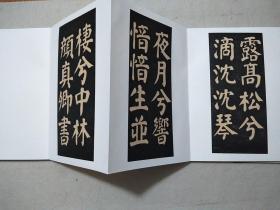 露高松兮
滴沈沈琴
夜月兮響
愔愔生並
棲兮中林
顔真卿書